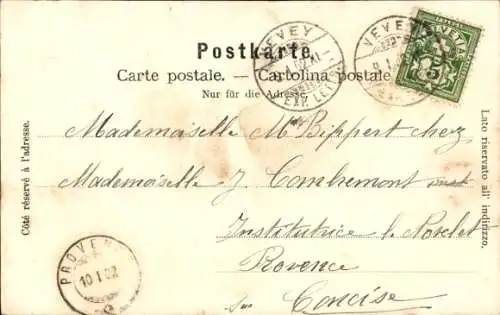 Postkarte.
Carte postale. — Cartolina postale.
Nur für die Adresse.
Côté réservé à l'adresse.
Lato riservato all' indirizzo.
VEVEY
EXP. LETTR.
VEVEY
HELVETIA
Mademoiselle M Bippert chez
Mademoiselle J. Combremont
Institutrice
Provence
sur Concise
PROVENCE
10 I 02